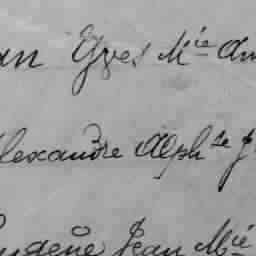 an Yves Mie Am
lexandre Alphse J
ugène Jean Mie